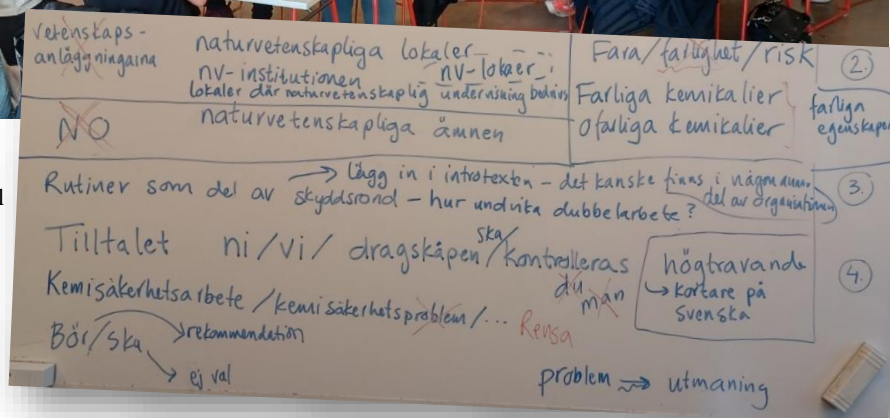 vetenskaps-
anläggningarna
naturvetenskapliga lokaler
nv-lokaer
nv-institutionen
lokaler där naturvetenskaplig undervisning bedrivs
NO
naturvetenskapliga ämnen
Fara/farlighet/risk
Farliga kemikalier
Ofarliga kemikalier
2.
farliga
egenskaper
Rutiner som del av → Lägg in i introtexten – det kanske finns i någon annan
skyddsrond – hur undvika dubbelarbete? del av organisationen
3.
Tilltalet ni/vi/ dragskåpen ska/kontrolleras
du
man
högtravande
→ kortare på
svenska
4.
Kemisäkerhetsarbete/kemisäkerhetsproblem/...
Rensa
Bör/ska
→ rekommendation
→ ej val
problem → utmaning